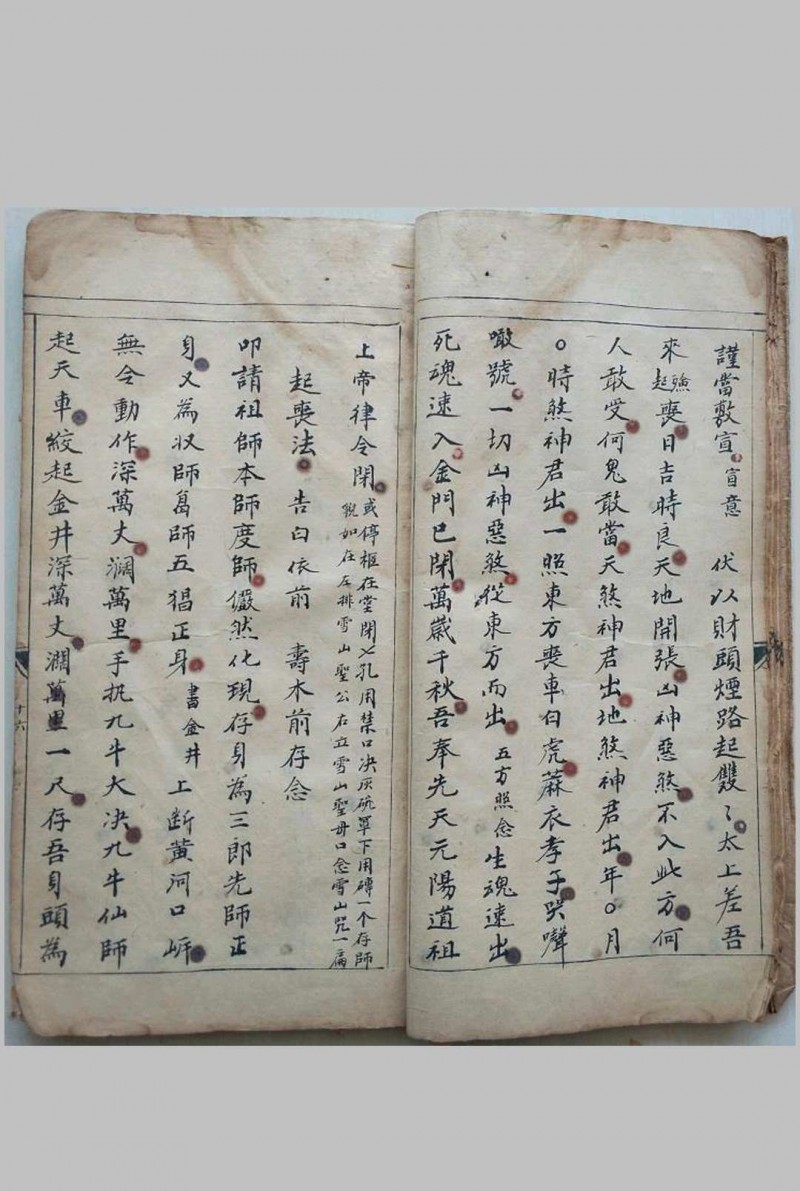 謹當敷宣宣意 伏以財頭煙路起雙〻太上差吾
來起殮喪日吉時良天地開張凶神惡煞不入此方何
人敢受何鬼敢當天煞神君出地煞神君出年〇月
〇時煞神君出一照東方喪車白虎蔴衣孝子哭聲
噉號一切凶神惡煞從東方而出五方照念生魂速出
死魂速入金門已閉萬歲千秋吾奉先天元陽道祖
上帝律令閉或停柩在堂閉七孔用禁口决灰碗罩下用磚一个存師
觀如在左排雪山聖公右立雪山聖母口念雪山咒一扁
起喪法告白依前 壽木前存念
叩請祖師本師度師儼然化現存身為三郎先師正
身又為收師葛師五猖正身書金井上断黄河口㟁
無令動作深萬丈濶萬里手执九牛大决九牛仙師
起天車絞起金井深萬丈濶萬里一尺存吾身頭為
十六